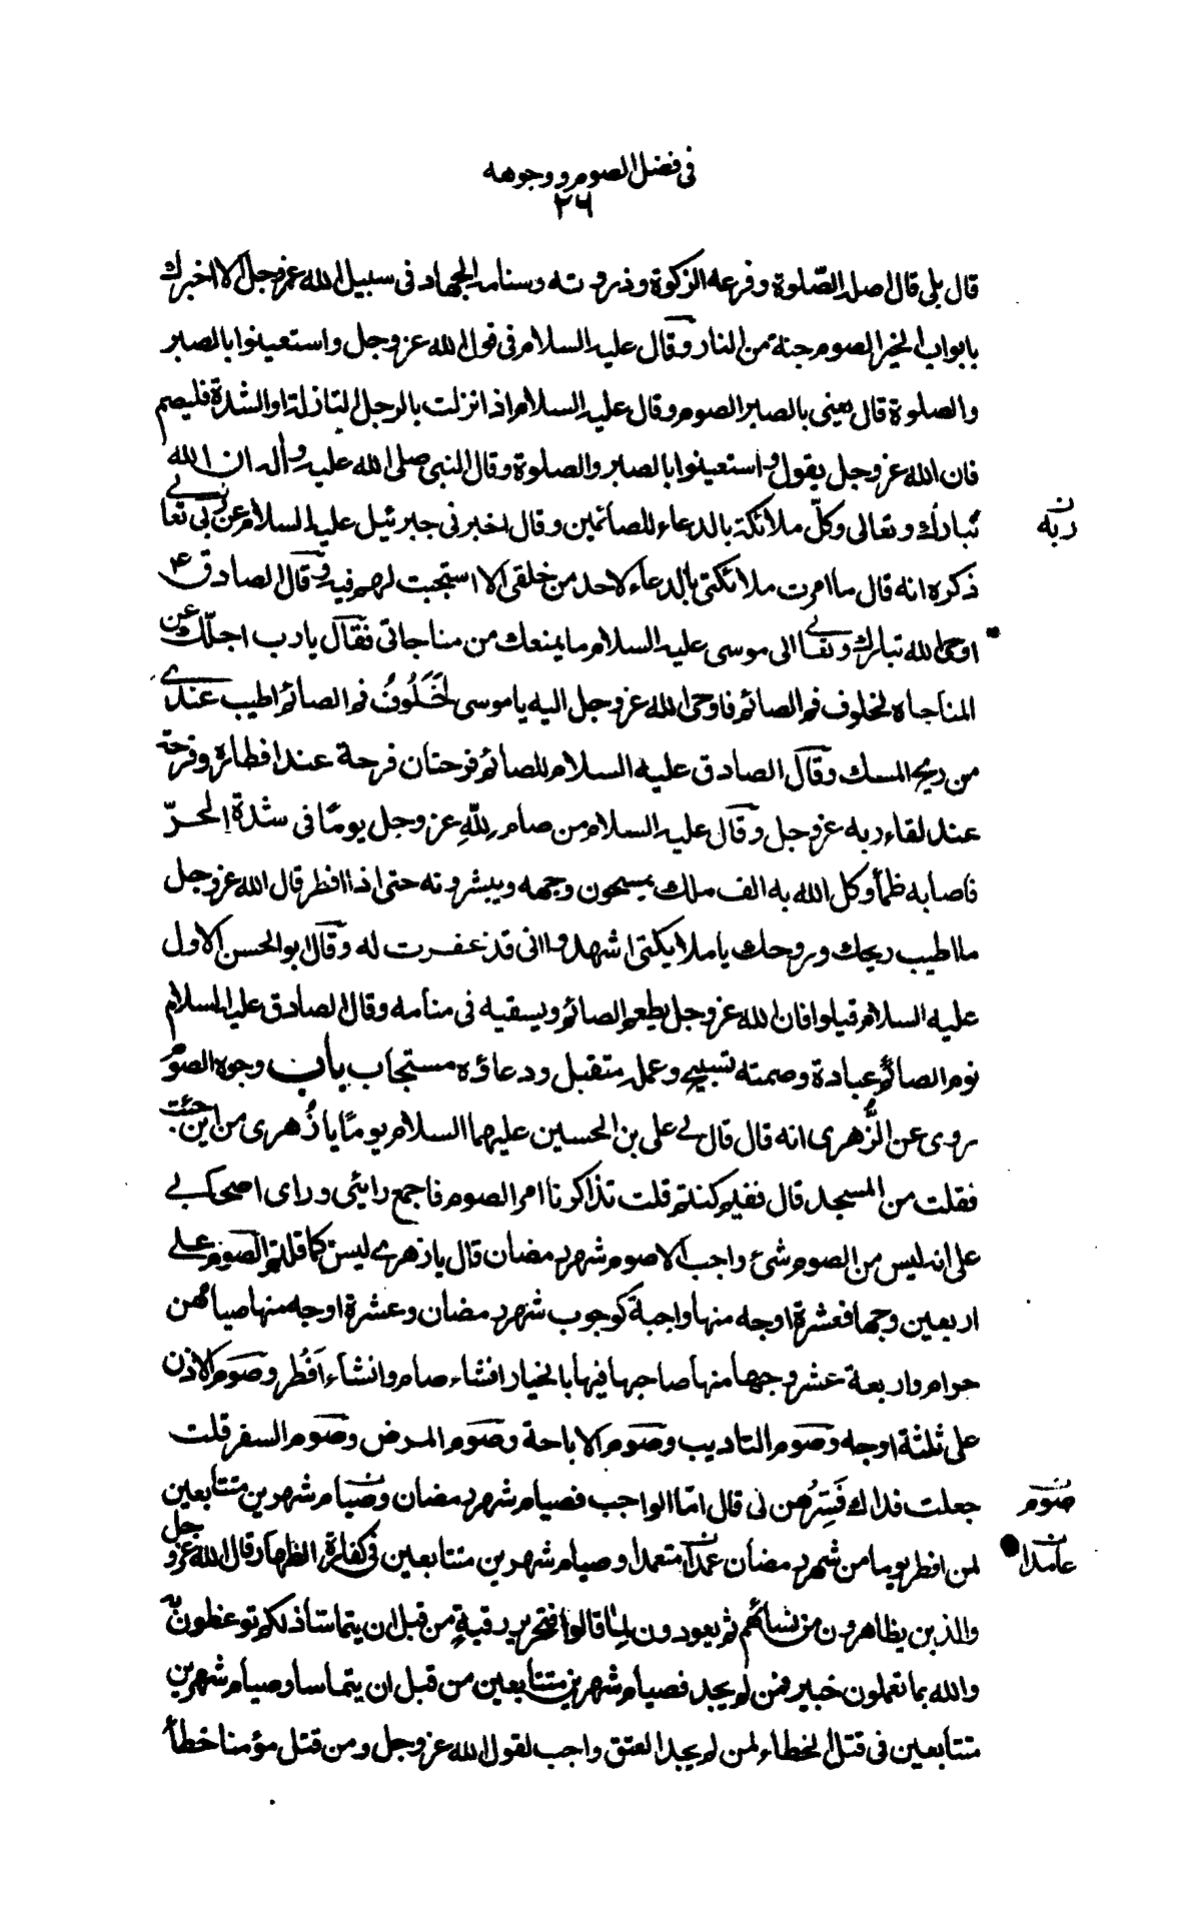 في فضل الصوم ووجوهه
٢٦
قال بلى قال اصله الصّلوة وفرعه الزكوة وذروته وسنامه الجهاد في سبيل الله عز وجل الا اخبرك
بابواب الخير الصوم جنة من النار وقال عليه السلام في قول الله عز وجل واستعينوا بالصبر
والصلوة قال يعني بالصبر الصوم وقال عليه السلام اذا نزلت بالرجل النازلة او الشدة فليصم
فان الله عز وجل يقول واستعينوا بالصبر والصلوة وقال النبي صلى الله عليه وآله ان الله
تبارك وتعالى وكلّ ملائكة بالدعاء للصائمين وقال اخبرني جبرئيل عليه السلام عن ربي تعالى
ربه
ذكره انه قال ما امرت ملائكتي بالدعاء لاحد من خلقي الا استجبت لهم فيه وقال الصادق ع
اوحى الله تبارك وتعالى الى موسى عليه السلام ما يمنعك من مناجاتي فقال يا رب اجلّك عن
المناجاة لخلوف فم الصائم فاوحى الله عز وجل اليه يا موسى لَخَلُوفُ فم الصائم اطيب عندي
من ريح المسك وقال الصادق عليه السلام للصائم فرحتان فرحة عند افطاره وفرحة
عند لقاء ربه عز وجل وقال عليه السلام من صام لِلّهِ عز وجل يومًا في شدة الحرّ
فاصابه ظمأ وكل الله به الف ملك يمسحون وجهه ويبشرونه حتى اذا افطر قال الله عز وجل
ما اطيب ريحك وروحك يا ملايكتي اشهدوا اني قد غفرت له وقال ابو الحسن الاول
عليه السلام قيلوا فان الله عز وجل يطعم الصائم ويسقيه في منامه وقال الصادق عليه السلام
نوم الصائم عبادة وصمته تسبيح وعمله متقبل ودعاؤه مستجاب باب وجوه الصوم
روى عن الزُّهرى انه قال قال لي على بن الحسين عليهما السلام يومًا يا زُهرى من اين جئت
فقلت من المسجد قال ففيم كنتم قلت تذاكرنا امر الصوم فاجمع رايئى وراى اصحابي
على انه ليس من الصوم شئ واجب الا صوم شهر رمضان قال يا زهري ليس كما قلتم الصوم على
اربعين وجها فعشرة اوجه منها واجبة كوجوب شهر رمضان وعشرة اوجه منها صيامهن
حرام واربعة عشر وجها منها صاحبها فيها بالخيار انشاء صام وانشاء اَفْطر وصوم الاذن
على ثلثة اوجه وصوم التاديب وصوم الاباحة وصوم المرض وصوم السفر قلت
جعلت فداك فَسِّرْهن لى قال امّا الواجب فصيام شهر رمضان وصيام شهرين متتابعين
صوم
لمن افطر يوما من شهر رمضان عمدا متعمدا وصيام شهرين متتابعين في كفارة الظهار قال الله عز وجل
عامدا
والذين يظاهرون من نسائهم ثم يعودون لما قالوا فتحرير رقبةٍ من قبل ان يتماسا ذلكم توعظون به
والله بما تعملون خبير فمن لم يجد فصيام شهرين متتابعين من قبل ان يتماسا وصيام شهرين
متتابعين في قتل الخطاء لمن لم يجد العتق واجب لقول الله عز وجل ومن قتل مؤمنا خطأ